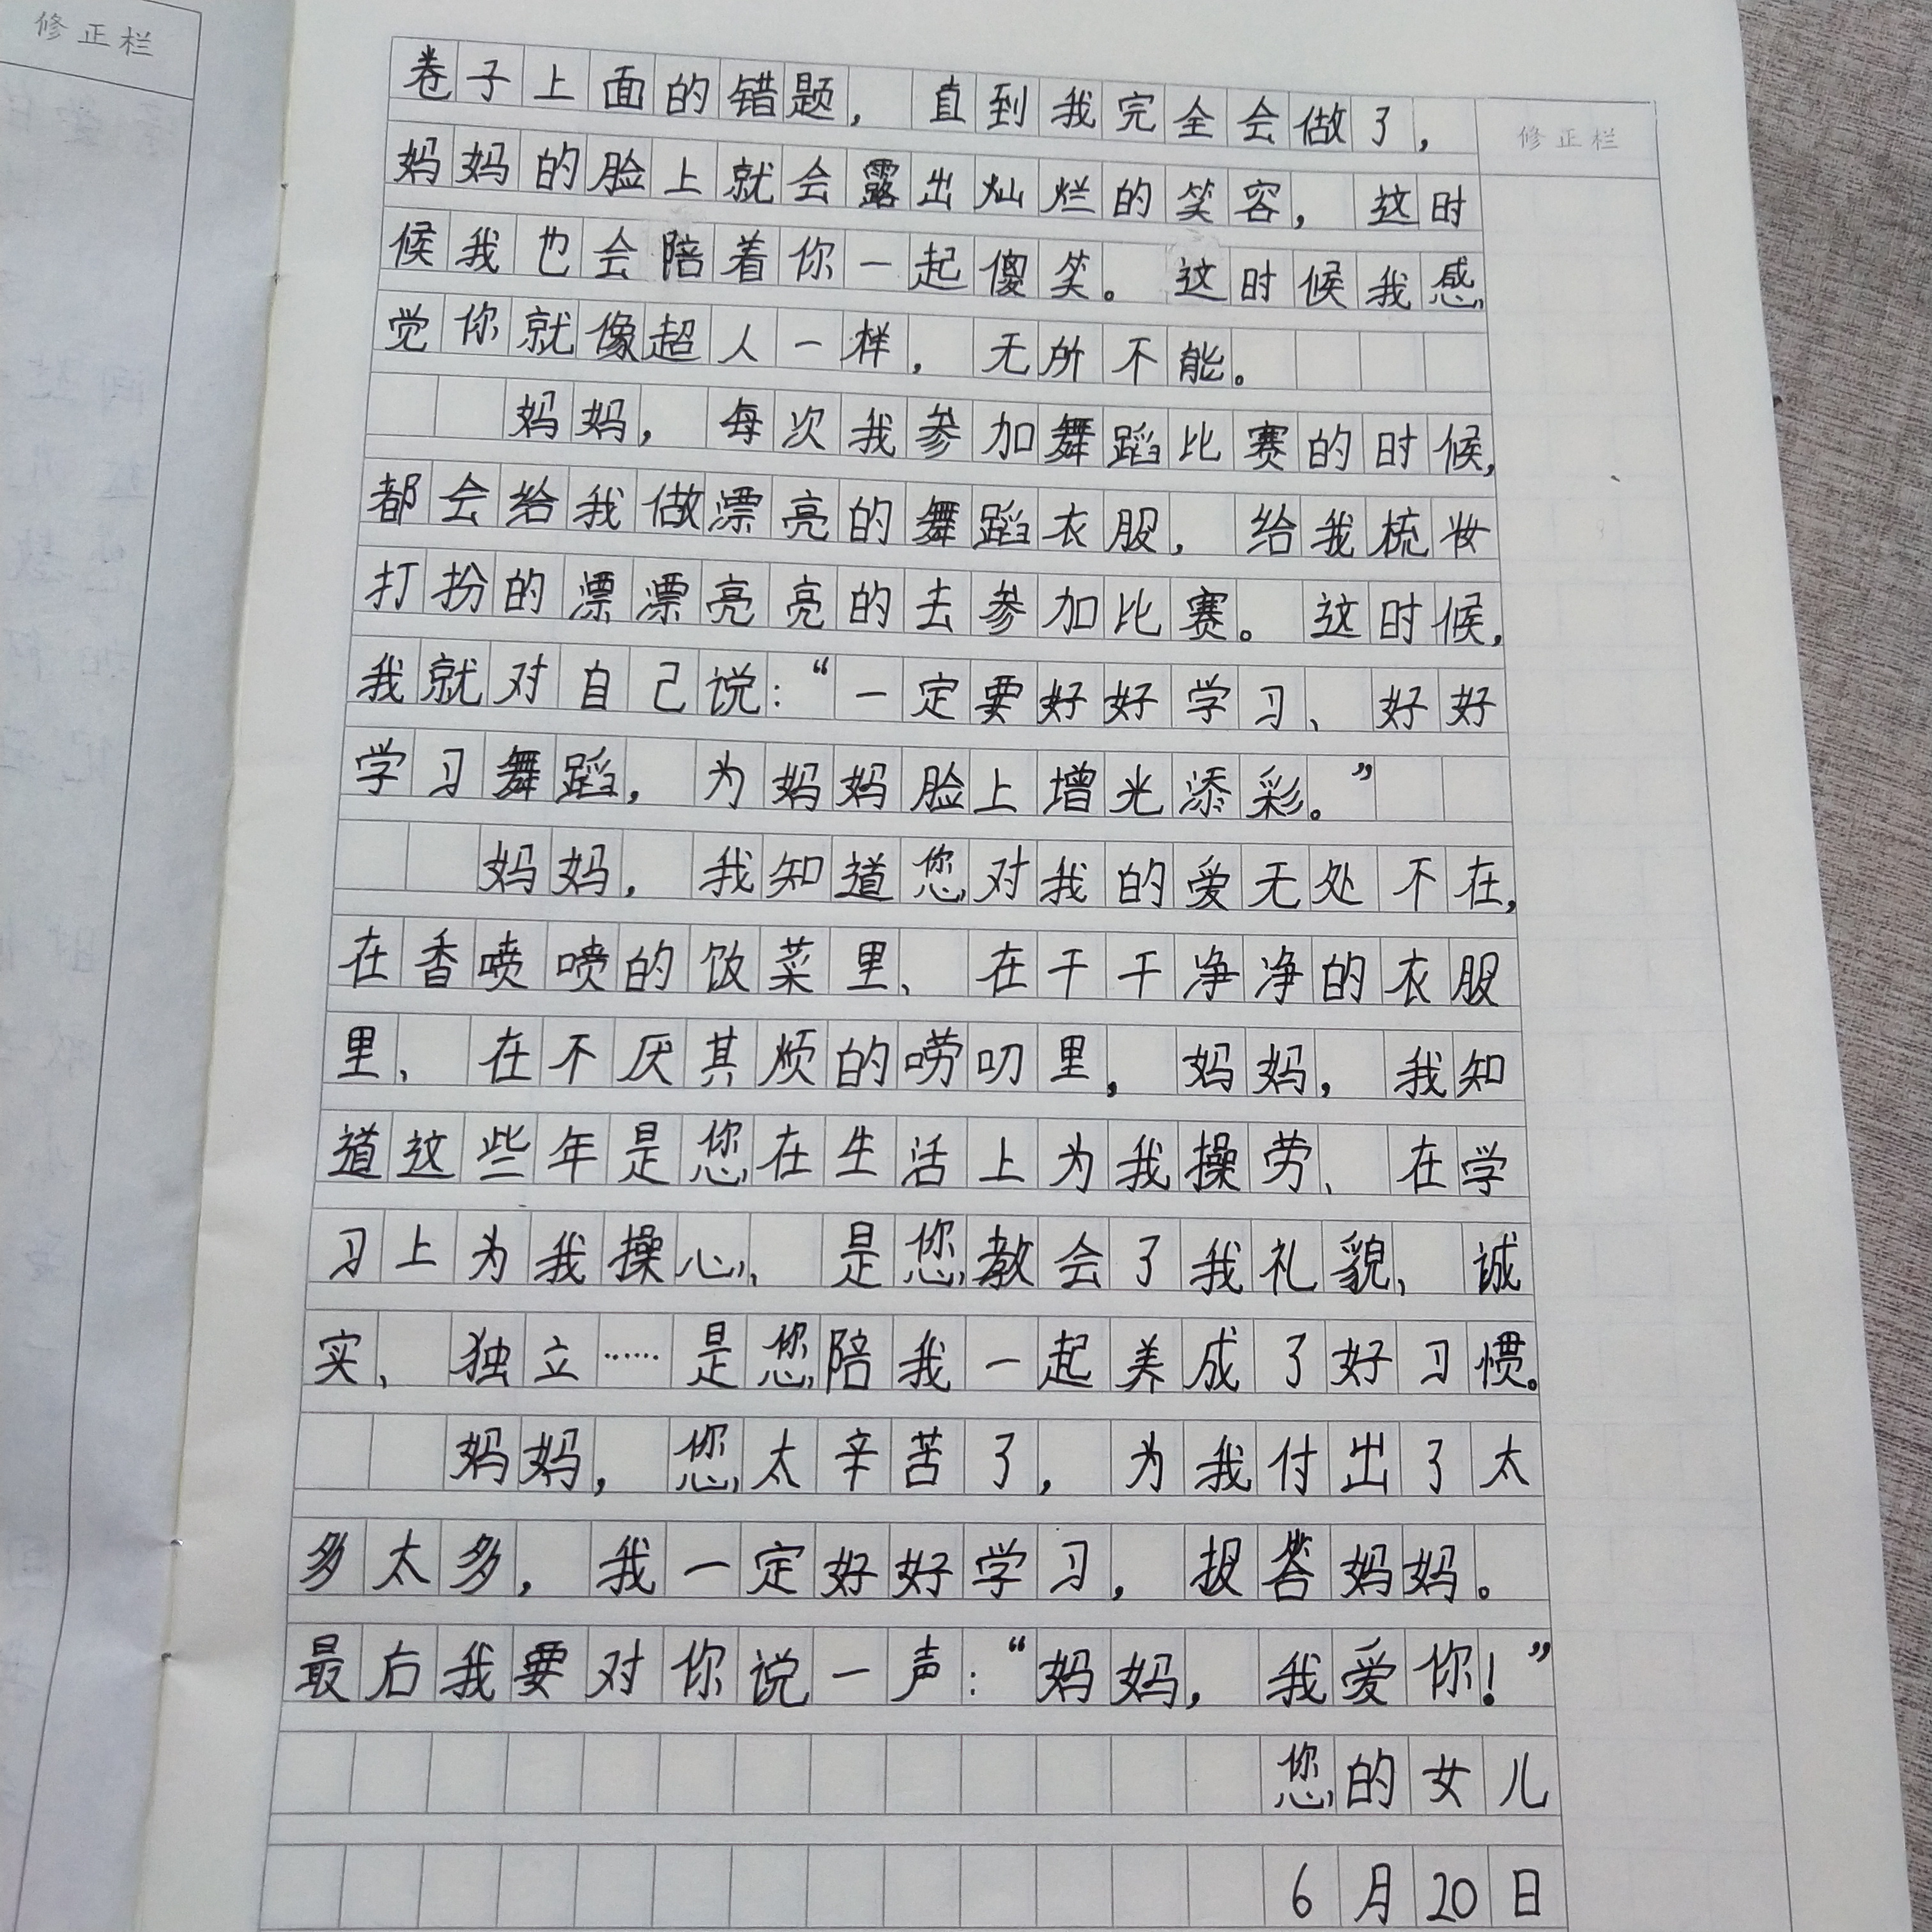 修正栏
修正栏
卷子上面的错题，直到我完全会做了，
妈妈的脸上就会露出灿烂的笑容，这时
候我也会陪着你一起傻笑。这时候我感
觉你就像超人一样，无所不能。
妈妈，每次我参加舞蹈比赛的时候，
都会给我做漂亮的舞蹈衣服，给我梳妆
打扮的漂漂亮亮的去参加比赛。这时候，
我就对自己说：“一定要好好学习、好好
学习舞蹈，为妈妈脸上增光添彩。”
妈妈，我知道您对我的爱无处不在，
在香喷喷的饭菜里、在干干净净的衣服
里、在不厌其烦的唠叨里，妈妈，我知
道这些年是您在生活上为我操劳、在学
习上为我操心、是您教会了我礼貌、诚
实、独立……是您陪我一起养成了好习惯。
妈妈，您太辛苦了，为我付出了太
多太多，我一定好好学习，报答妈妈。
最后我要对你说一声：“妈妈，我爱你！”
您的女儿
6月20日